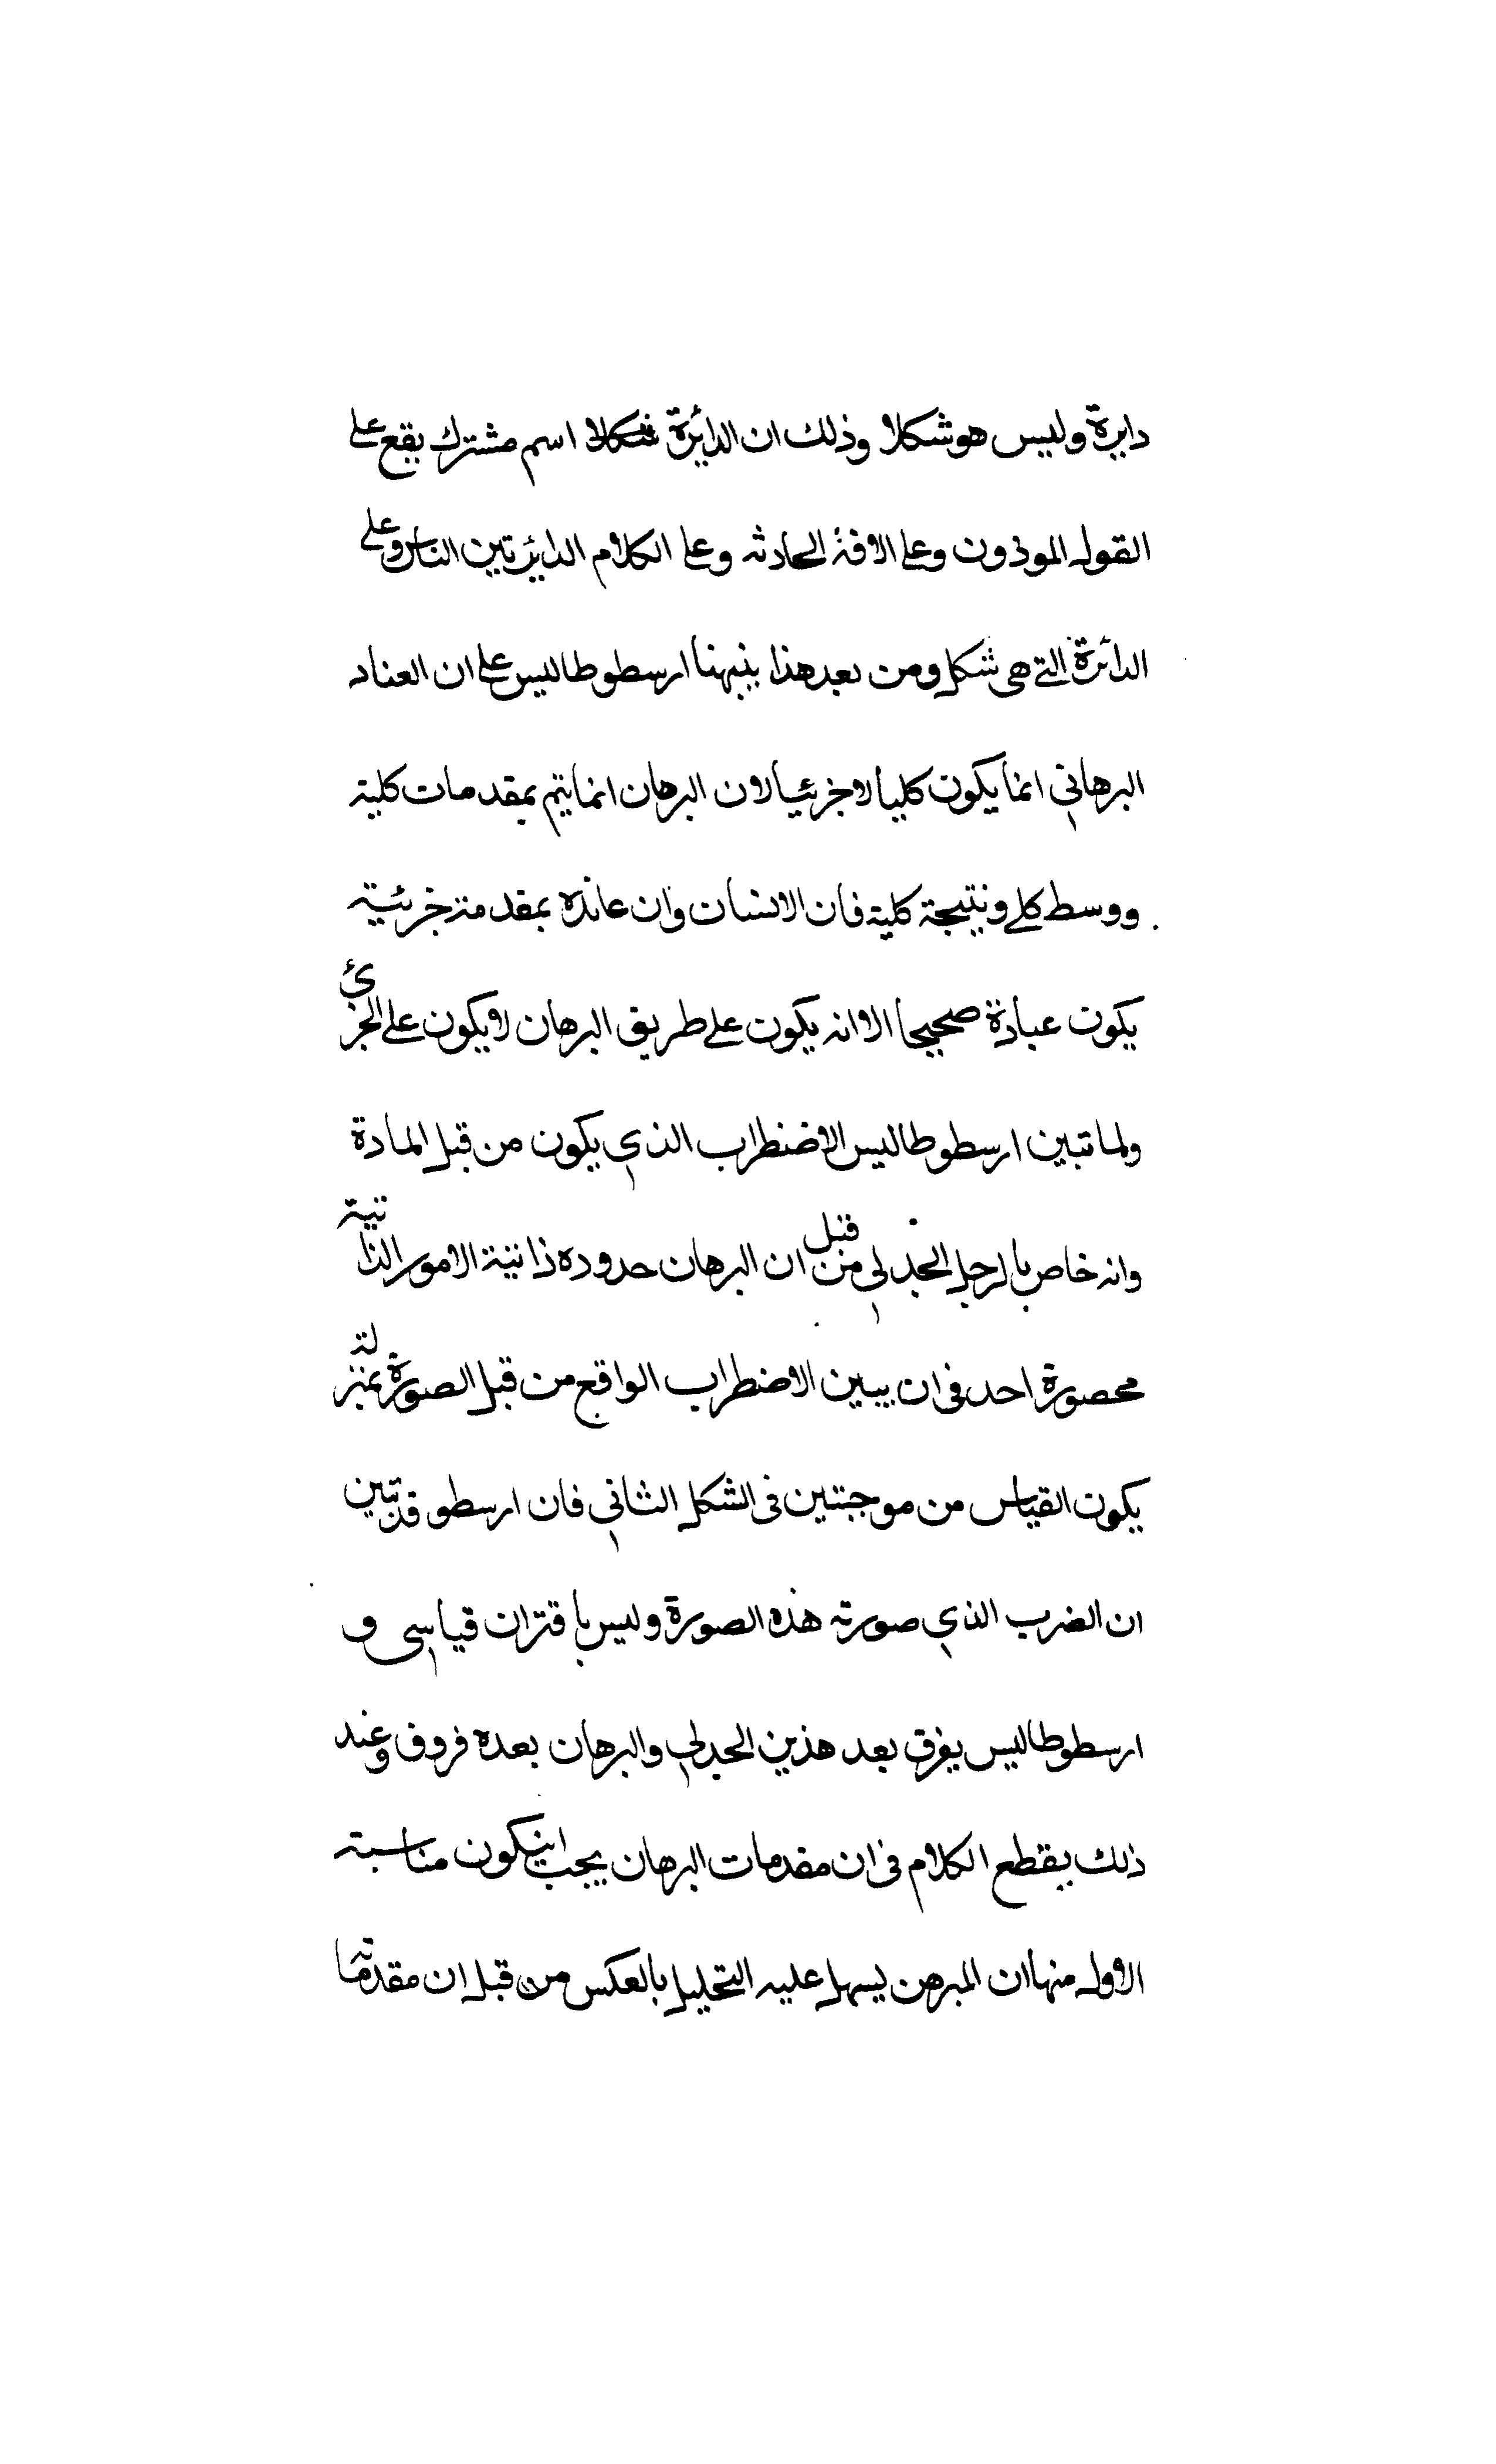 دايرة وليس هو شكلا وذلك ان الدائرة شكلا اسم مشترك يقع على
القول الموذون وعلى الافة الحادثه وعلى الكلام الدائر تبين الناس وعلى
الدائرة التي هي شكل ومن بعد هذا ينبهنا ارسطوطاليس على ان العناد
البرهاني انما يكون كليا لا خرئيا لان البرهان انما يتم بمقدمات كلية
ووسط كلي ونتيجة كلية فان الانسان وان عانده بمقدمة خرئية
يكون عبادة صحيحا الا انه يكون على طريق البرهان لا يكون على الجزئ
ولما تبين ارسطوطاليس الاضطراب الذي يكون من قبل المادة
وانه خاص بالرجل الجدلي من قبل ان البرهان حدوده ذاتية الامور الذاتية
محصورة احد في ان يبين الاضطراب الواقع من قبل الصورة بمنزلة
يكون القياس من موجبتين في الشكل الثاني فان ارسطو قد تبين
ان الضرب الذي صورته هذه الصورة وليس باقتران قياسي و
ارسطوطاليس يفرق بعد هذين الجدلي والبرهان بعده فروق وعند
ذلك يقطع الكلام في ان مقدمات البرهان يجب اينكون مناسبة
الاول منها ان المبرهن يسهل عليه التحليل بالعكس من قبل ان مقدماته